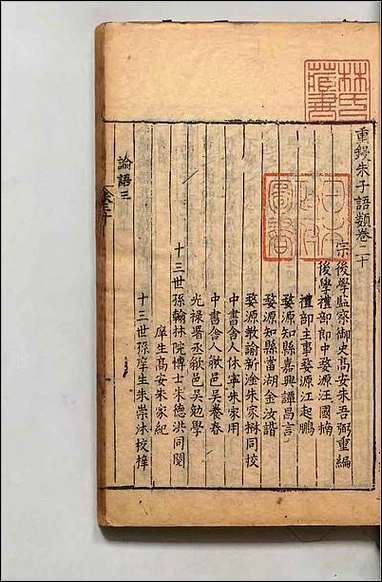 重鍥朱子語類卷二十
宗後學監察御史高安朱吾弼重編
後學禮部郎中婺源汪國楠
禮部主事婺源江起鵬
婺源知縣嘉興譚昌言
婺源知縣當湖金汝諧
婺源教諭新淦朱家楙同校
中書舍人休寧朱家用
中書舍人歙邑吳養春
光祿署丞歙邑吳勉學
十三世孫翰林院博士朱德洪同閱
庠生高安朱家紀
十三世孫庠生朱崇沐校梓
論語三
林氏藏書